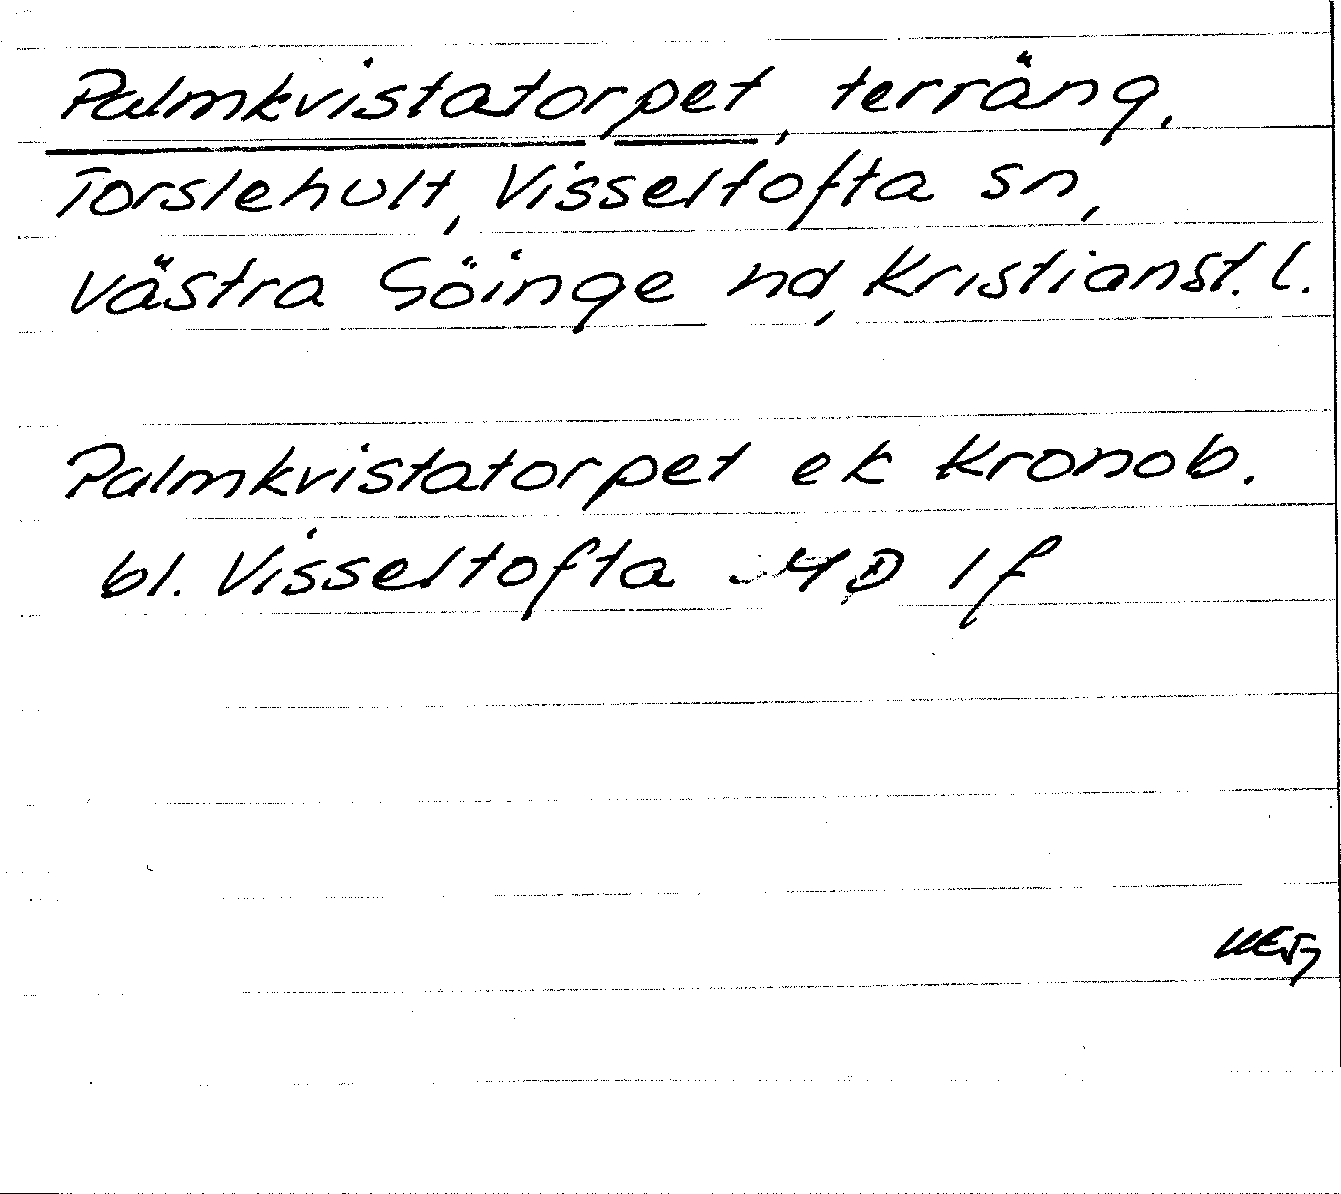 Palmkvistatorpet, terräng,
Torslehult, Visseltofta sn,
västra Göinge hd, Kristianst. l.
Palmkvistatorpet ek Kronob.
bl. Visseltofta 4D 1f